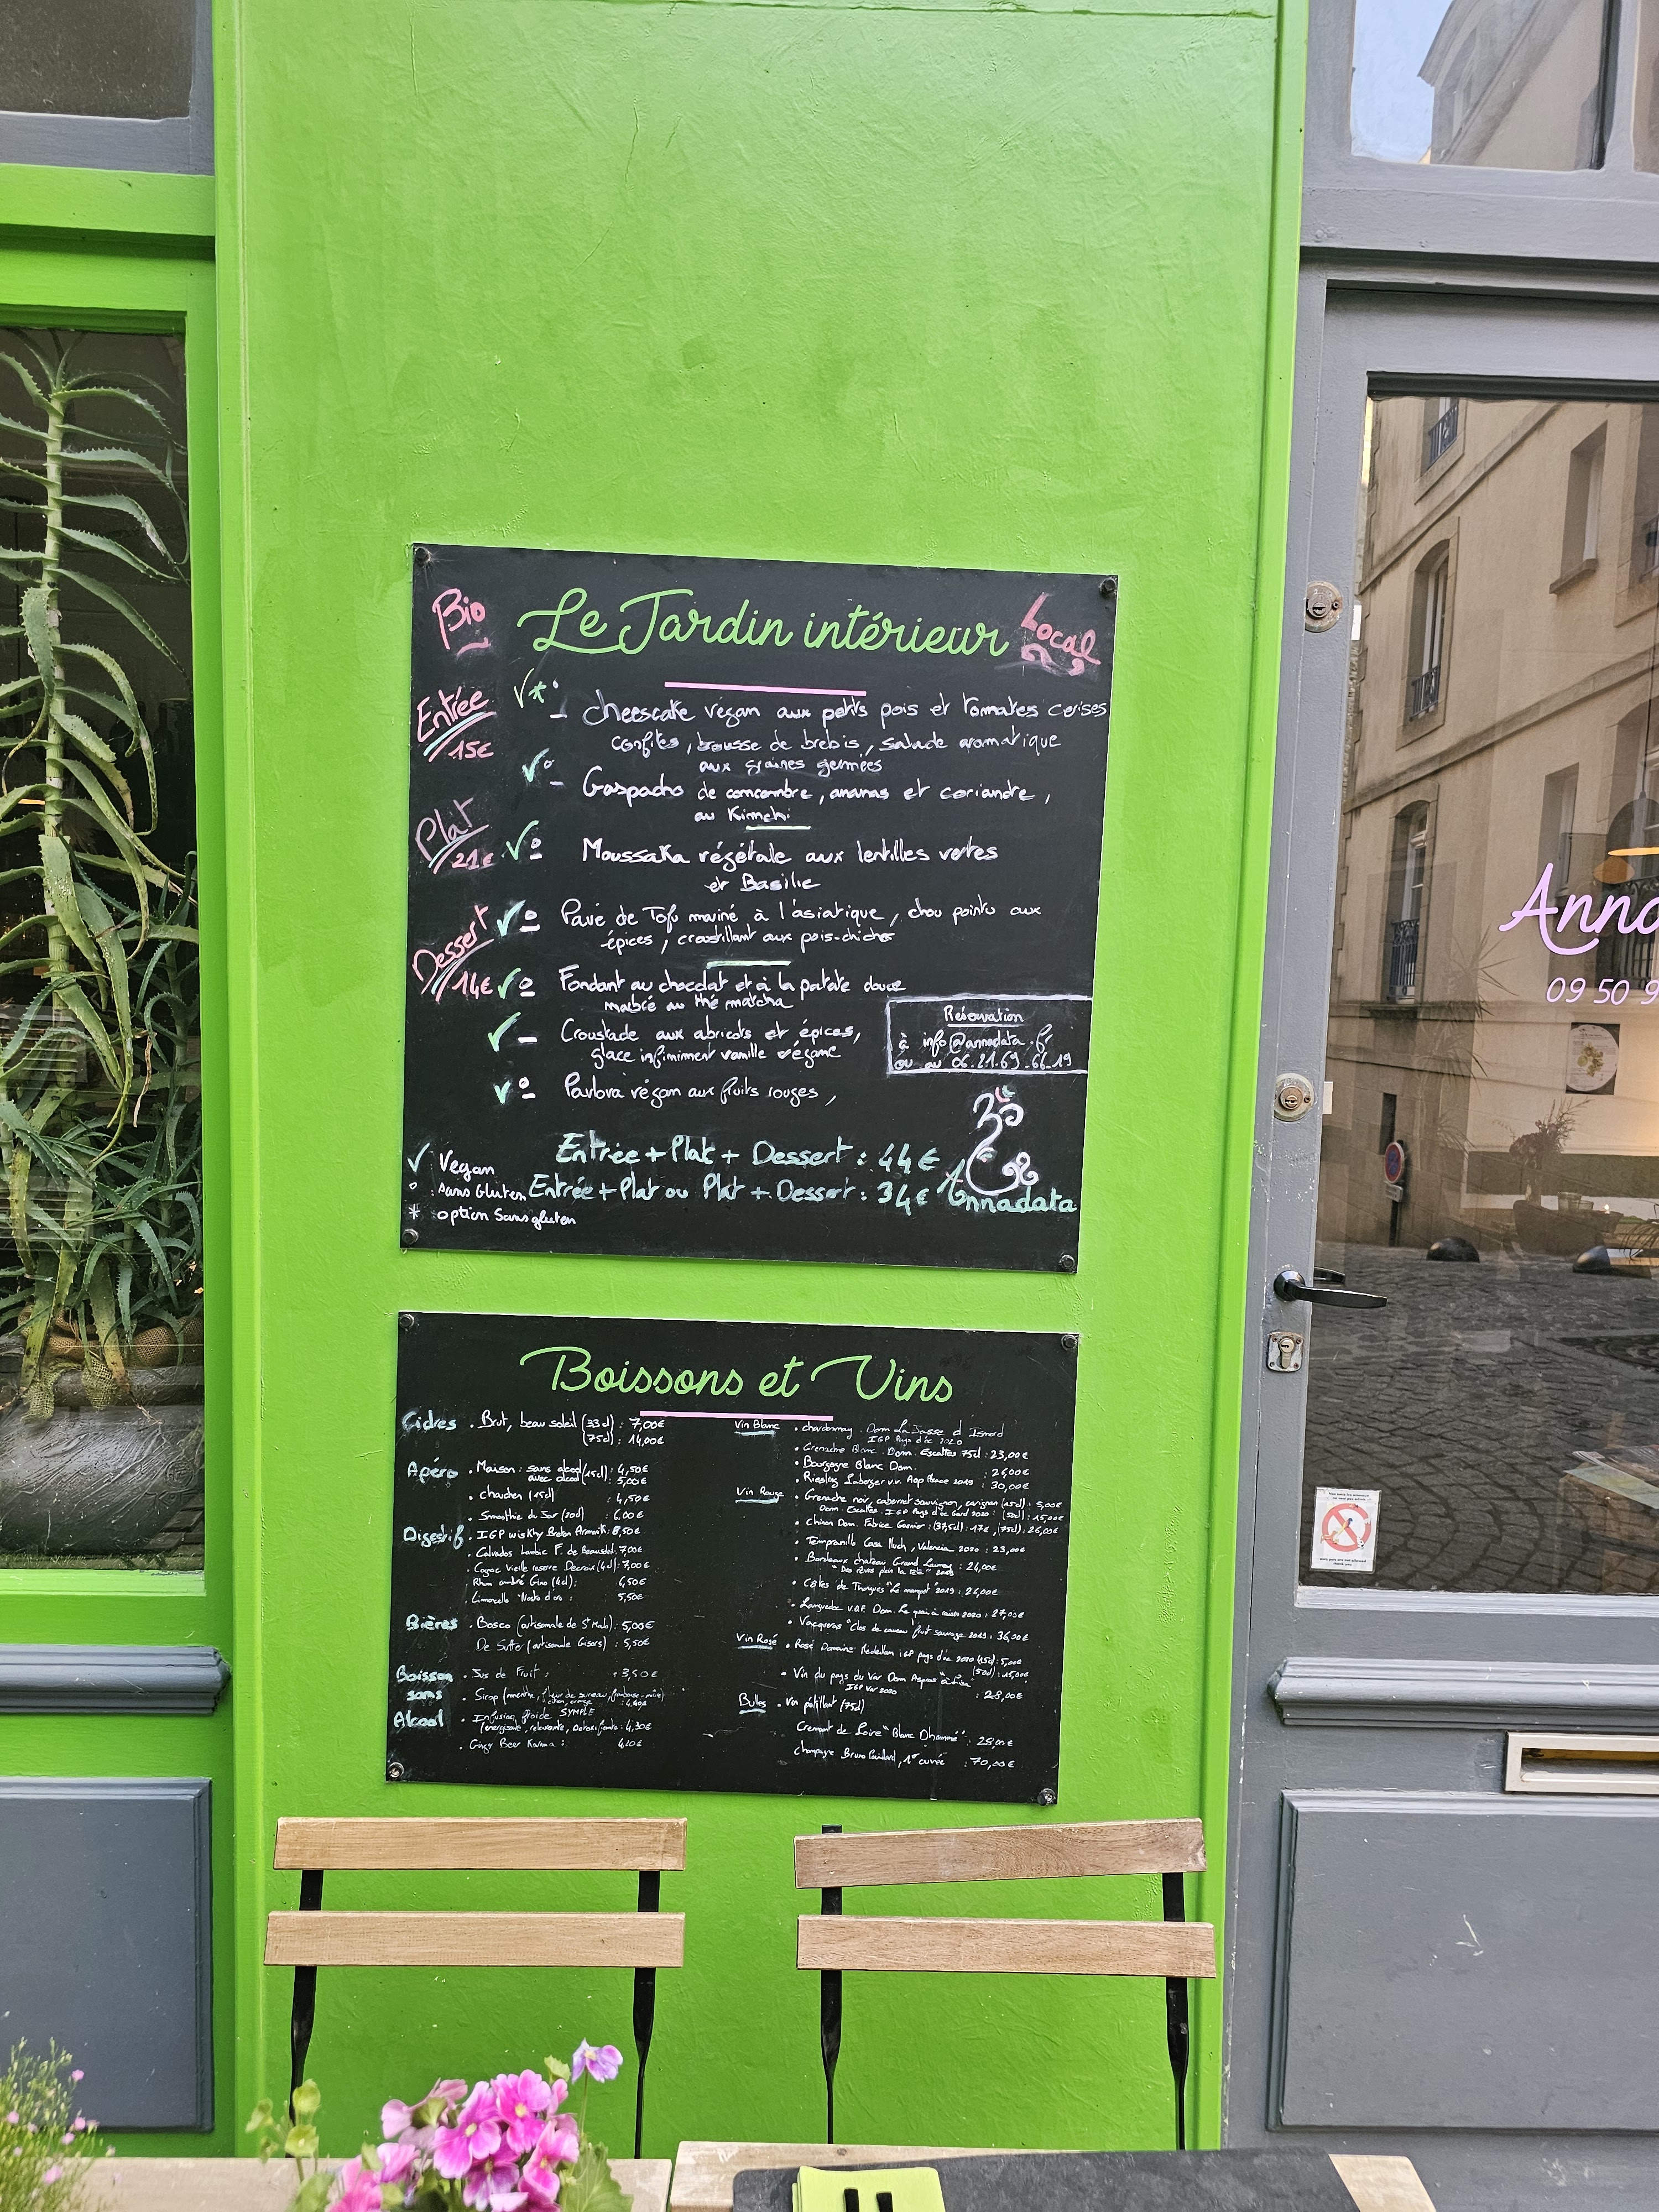 Bio
Le Jardin intérieur
Local
Entrée
15€
✓*° - cheescake végan aux petits pois et tomates cerises
confites, mousse de brebis, salade aromatique
aux graines germées
✓° - Gaspacho de concombre, ananas et coriandre,
au Kimchi
Plat
21€
✓° - Moussaka végétale aux lentilles vertes
et Basilic
✓° - Pavé de Tofu mariné à l'asiatique, chou pointu aux
épices, croustillant aux pois-chiches
Dessert
14€
✓° - Fondant au chocolat et à la patate douce
marbré au thé matcha
✓ - Croustade aux abricots et épices,
glace infiniment vanille végane
✓° - Pavlova végan aux fruits rouges,
Réservation
à info@annadata.fr
ou au 06.21.69.66.19
Entrée + Plat + Dessert : 44€
Entrée + Plat ou Plat + Dessert : 34€
Annadata
✓ : Vegan
° : sans Gluten
* : option Sans gluten
Boissons et Vins
Cidres
• Brut, beau soleil (33cl) : 7,00€
(75cl) : 14,00€
Apéro
• Maison : sans alcool (15cl) : 4,50€
avec alcool : 5,00€
• Chouchen (15cl) : 4,50€
• Smoothie du Jour (20cl) : 6,00€
Digestif
• IGP wisKhy Breton Armorik : 8,50€
• Calvados Lambic F. de Beausoleil : 7,00€
• Cognac Vieille reserve Decroix (4cl) : 7,00€
• Rhum ambré Gino (4cl) : 6,50€
• Limoncello "Nostro d'oro" : 5,50€
Bières
• Bosco (artisanale de St Malo) : 5,00€
De Sutter (artisanale Gisors) : 5,50€
Boisson
sans
Alcool
• Jus de Fruit : 3,50€
• Sirop (menthe, fleur de sureau,
• Infusion froide SYMPLE
(énergisante, relaxante, Detoxifiante : 4,30€
• Gingy Beer Karma : 4,20€
Vin Blanc
• chardonnay . Dom La Jasse d Isnard
IGP Pays d'oc 2020
• Grenache Blanc . Dom . Escattes 75cl : 23,00€
• Bourgogne Blanc Dom. : 26,00€
• Riesling Laberger v.v. Aop Alsace 2018 : 30,00€
Vin Rouge
• Grenache noir, cabernet sauvignon, carignan (15cl) : 5,00€
Dom. Escattes . IGP Pays d'oc Gard 2020 : (50cl) : 15,00€
• Chinon Dom. Fabrice Gasnier : (37,5cl) : 17€, (75cl) : 26,00€
• Tempranillo Casa lluch, Valencia 2020 : 23,00€
• Bordeaux chateau Grand Launay : 24,00€
"Des rêves plein la tête"
• Côtes de Thongues "Le marquet" 2019 : 26,00€
• Languedoc Dom. 2020 : 27,00€
• Vacqueras "Clos de caveau fruit sauvage 2019 : 36,00€
Vin Rosé
• Rosé Domaine IGP pays d'oc 2020 (15cl) : 5,00€
(50cl) : 15,00€
• Vin du pays du Var Dom
IGP Var 2020 : 28,00€
Bulles
• Vin pétillant (75cl)
Cremant de Loire "Blanc Dhommé" : 28,00€
champagne Bruno Paillard, 1e cuvée : 70,00€
Anna
09 50 9